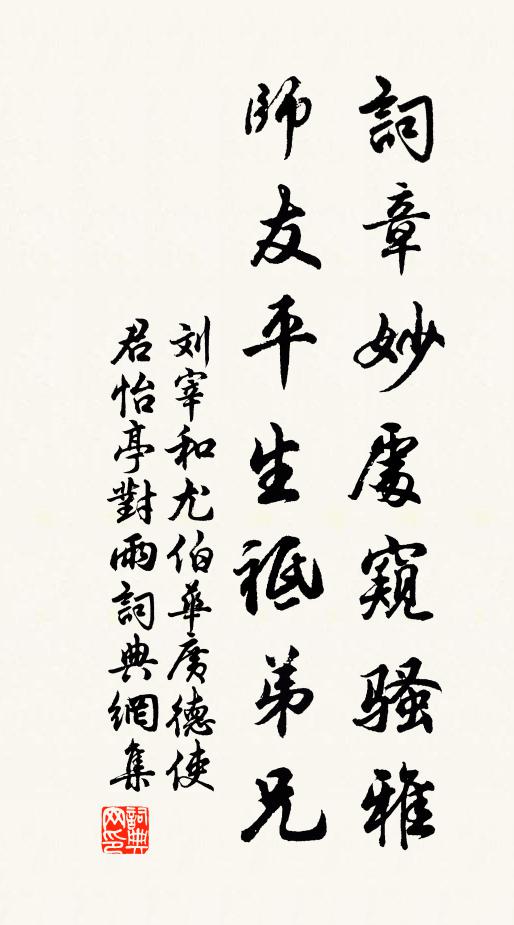 詞章妙處窺騷雅
師友平生祗弟兄
刘宰和尤伯華廣德使
君怡亭對雨詞典網集
詞典網印